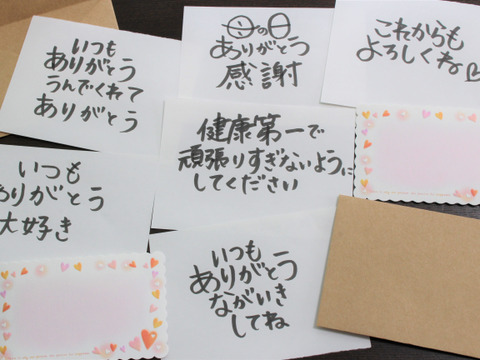 いつも
ありがとう
うんでくれて
ありがとう
母の日
ありがとう
感謝
これからも
よろしくね
健康第一で
頑張りすぎないように
してください
いつも
ありがとう
大好き
いつも
ありがとう
ながいき
してね